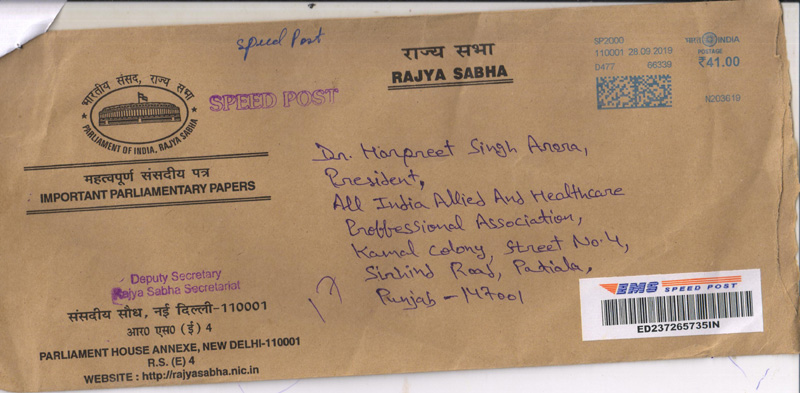 Speed Post
राज्य सभा
RAJYA SABHA
SP2000
110001 28.09.2019
D477 66339
INDIA
POSTAGE
₹41.00
N203619
भारतीय संसद, राज्य सभा
PARLIAMENT OF INDIA, RAJYA SABHA
SPEED POST
महत्वपूर्ण संसदीय पत्र
IMPORTANT PARLIAMENTARY PAPERS
Dr. Harpreet Singh Arora,
President,
All India Allied And Healthcare
Proffessional Association,
Kamal Colony, Street No. 4,
Sirhind Road, Patiala,
Punjab - 147001
Deputy Secretary
Rajya Sabha Secretariat
संसदीय सौध, नई दिल्ली-110001
आर० एस० ( ई ) 4
PARLIAMENT HOUSE ANNEXE, NEW DELHI-110001
R.S. (E) 4
WEBSITE : http://rajyasabha.nic.in
EMS SPEED POST
ED237265735IN